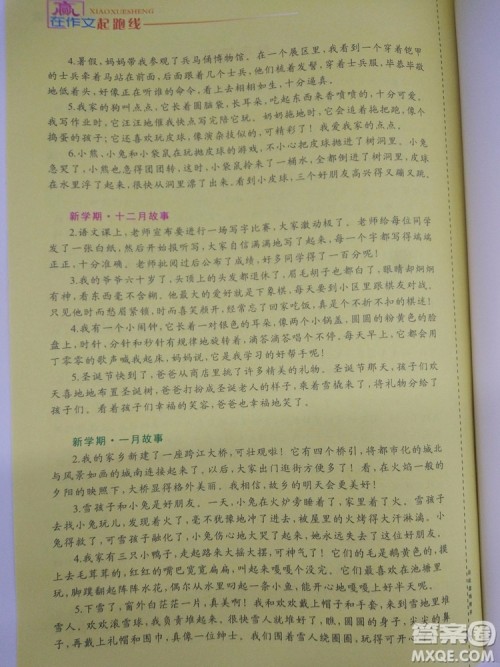 赢
XIAOXUESHENG
在作文起跑线
4.暑假,妈妈带我参观了兵马俑博物馆。在一个展区里,我看到穿着铠甲
的士兵牵着马站在前面,后面是士兵俑,他们梳着发髻,穿着士兵服,毕恭毕敬
地低着头,好像正在听谁的命令,看上去栩栩如生,十分逼真。
5.我家的狗叫点点,它长着圆脑袋,长耳朵,吃起东西来香喷喷的,十分可爱。
我写作业时,它汪汪地催我快点写完陪它玩。奶奶拖地时,它会追着拖把跑,像个
捣蛋的孩子;它还喜欢玩皮球,像演杂技似的,可精彩了!我爱我家的点点。
6.小熊、小兔和小袋鼠在玩抛皮球的游戏。不小心把皮球抛进了树洞里,小兔
急哭了,小熊也急得团团转,这时,小袋鼠拎来了一桶水,全部倒进了树洞里,皮球
在水里浮了起来,很快从洞里漂了出来,三个好朋友高兴得又蹦又跳。
新学期·十二月故事
2.语文课上,老师宣布要进行一场写字比赛,大家激动极了。老师给每位同学
发了一张白纸,然后开始报听写,大家认真地写了起来,每一个字都写得端端
正正,十分准确。老师批阅过后公布了获奖名单,大家开心极了。
3.我的爷爷六十岁了,头顶上的头发都退休了,眉毛胡子也白了,眼睛却炯炯
有神,看东西毫不含糊。他最大的爱好是下象棋,每天都要到小区里跟棋友对战。
只见他时而愁眉紧锁,时而眉开眼笑,经常忘了回家吃饭,真是个不折不扣的棋迷!
4.我有一个小闹钟,它长着一对橙黄色的耳朵,像两个卫兵,圆圆的粉黄色的脸
盘上,时针、分针和秒针有规律地旋转着,滴答滴答唱个不停,每天早上,它都会用
丁零零的歌声喊我起床,妈妈说,它是我学习的好帮手呢!
5.圣诞节快到了,爸爸从商店里挑了许多精美的礼物。圣诞节这天,孩子们欢
天喜地地布置圣诞树,爸爸打扮成圣诞老人的样子,乘着雪橇来了,将礼物分给了
孩子们。看着孩子们幸福的笑容,爸爸也幸福地笑了。
新学期·一月故事
2.我的家乡新建了一座跨江大桥,可壮观啦!它有四个桥引,将都市化的城北
与风景如画的城南连接起来了,以后,大家出门逛街可方便啦!看,在火焰一般的
夕阳的映照下,大桥显得格外美丽。我相信,故乡的明天会更美好!
3.雪孩子和小兔是好朋友。一天,小兔在火炉旁睡着了,家里着火了。雪孩子
去找小兔玩儿,发现着火了,毫不犹豫地冲进去,被屋里的火烤得大汗淋漓。小
兔得救了,可雪孩子融化了,小兔伤心地大哭了起来,她永远不会忘记雪孩子的。
4.我家有三只小鸭子,走起路来大摇大摆,可神气了!它们的毛是鹅黄色的,摸
上去毛茸茸的,红红的嘴巴宽宽扁扁的,叫起来嘎嘎个没完。它们最喜欢在池塘
里玩,翅膀翻起阵阵水花,偶尔从水里叼出一只小虾,会嘎嘎嘎地美上好半天呢。
5.下雪了,窗外茫茫一片,真美啊!我和爸爸戴上了帽子和手套,来到雪地里堆
雪人。欢欢滚雪球,我负责堆起来,很快就堆好了。雪人有着圆圆的身子,尖尖的鼻
子,再戴上礼帽和围巾,真像一位绅士。我们高兴地围着雪人绕圈圈,玩得可开